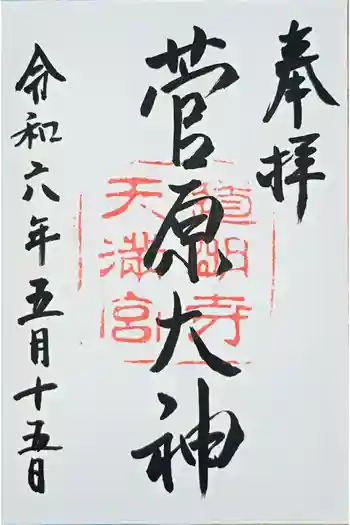 奉拝
菅原大神
天満宮
令和六年五月十五日